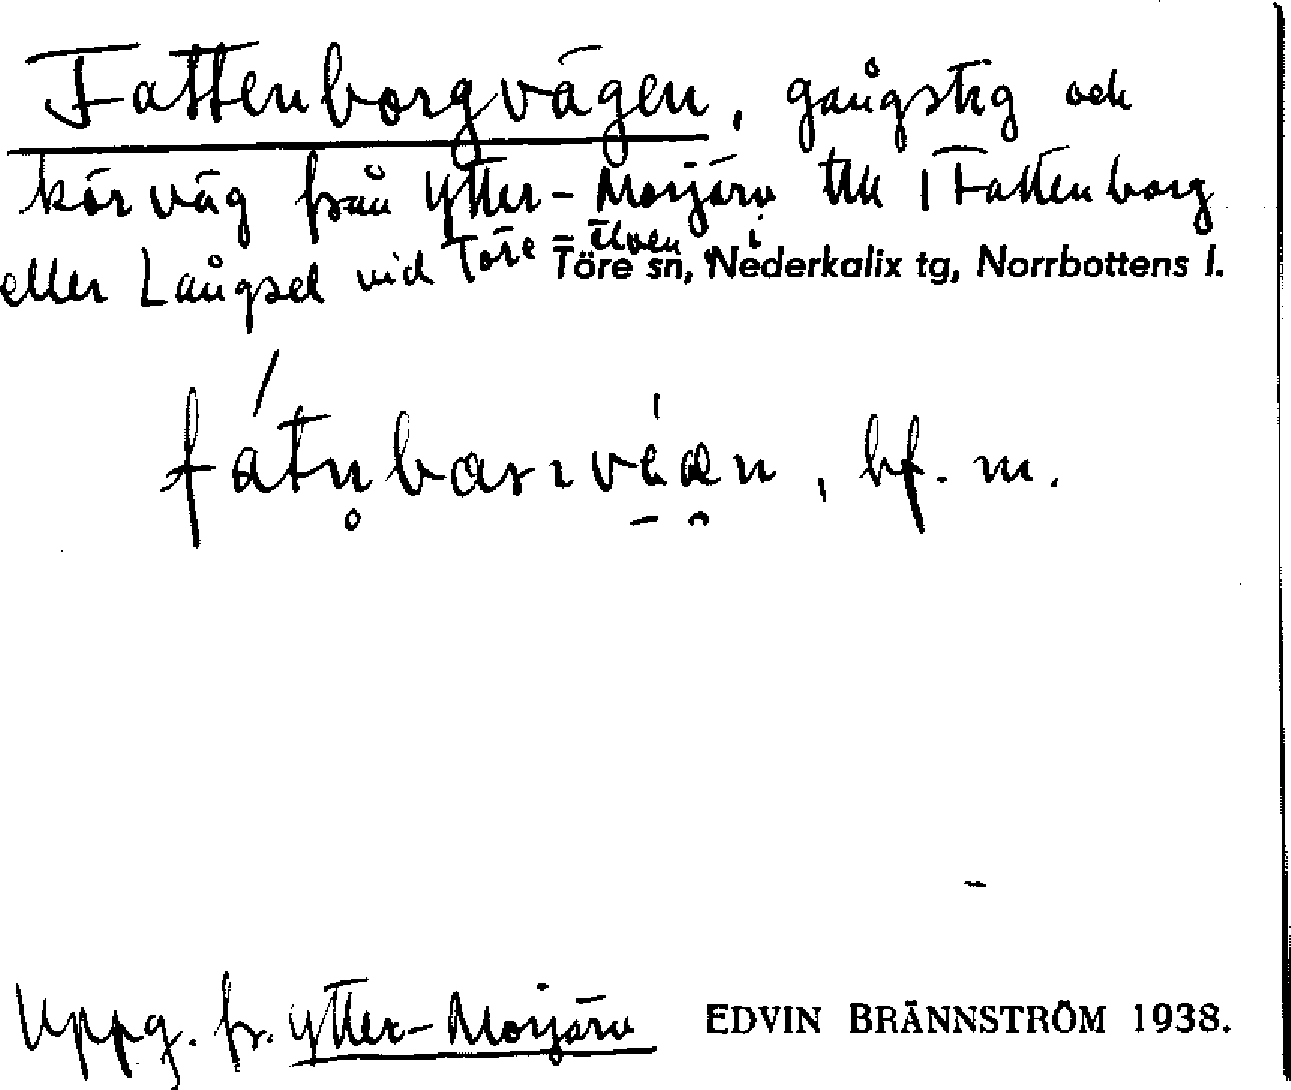 Fattenborgvägen, gångstig och
körväg från Ytter-Morjärv till Fattenborg
eller Långsel vid Töre-älven, i
Töre sn, Nederkalix tg, Norrbottens l.
bf. m.
Uppg. fr. Ytter-Morjärv EDVIN BRÄNNSTRÖM 1938.